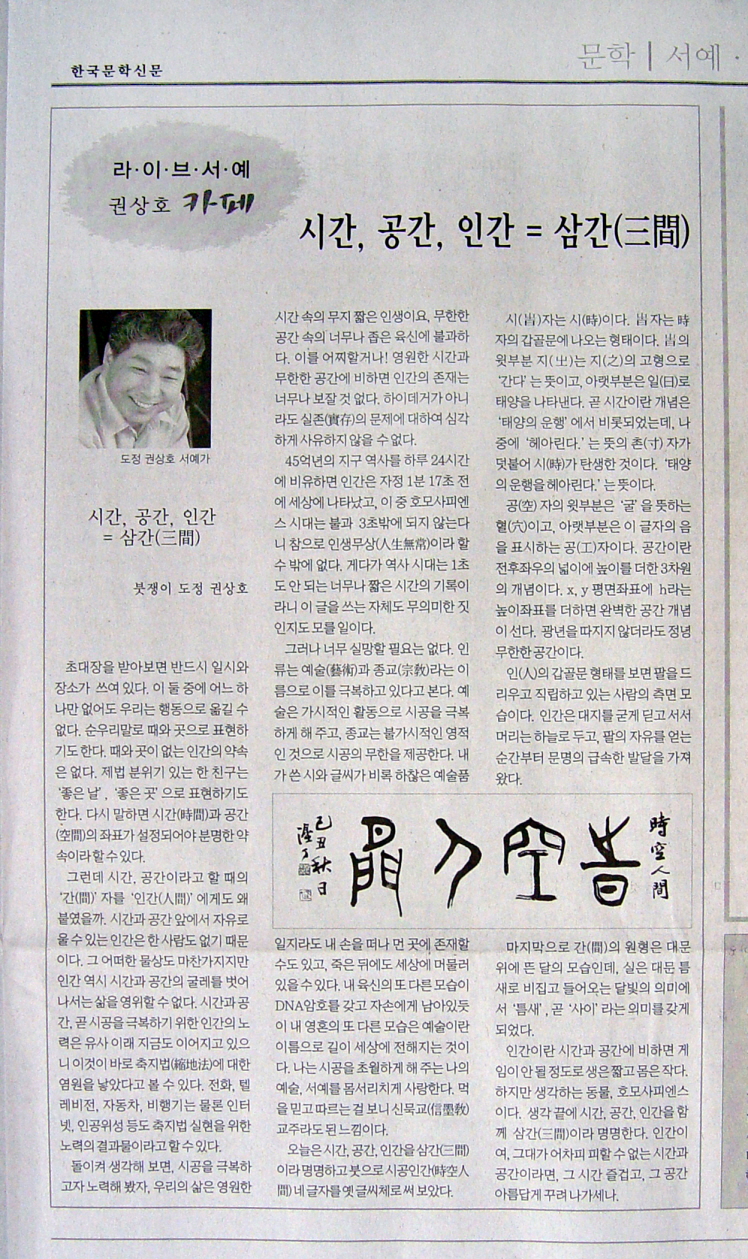 한국문학신문
문학 | 서예 ·
라·이·브·서·예
권상호 카페
시간, 공간, 인간 = 삼간(三間)
도정 권상호 서예가
시간, 공간, 인간
= 삼간(三間)
붓쟁이 도정 권상호
초대장을 받아보면 반드시 일시와
장소가 쓰여 있다. 이 둘 중에 어느 하
나만 없어도 우리는 행동으로 옮길 수
없다. 순우리말로 때와 곳으로 표현하
기도 한다. 때와 곳이 없는 인간의 약속
은 없다. 제법 분위기 있는 한 친구는
‘좋은 날’, ‘좋은 곳’으로 표현하기도
한다. 다시 말하면 시간(時間)과 공간
(空間)의 좌표가 설정되어야 분명한 약
속이라 할 수 있다.
그런데 시간, 공간이라고 할 때의
‘간(間)’자를 ‘인간(人間)’에게도 왜
붙였을까. 시간과 공간 앞에서 자유로
울 수 있는 인간은 한 사람도 없기 때문
이다. 그 어떠한 물상도 마찬가지지만
인간 역시 시간과 공간의 굴레를 벗어
나서는 삶을 영위할 수 없다. 시간과 공
간, 곧 시공을 극복하기 위한 인간의 노
력은 유사 이래 지금도 이어지고 있으
니 이것이 바로 축지법(縮地法)에 대한
염원을 낳았다고 볼 수 있다. 전화, 텔
레비전, 자동차, 비행기는 물론 인터
넷, 인공위성 등도 축지법 실현을 위한
노력의 결과물이라고 할 수 있다.
돌이켜 생각해 보면, 시공을 극복하
고자 노력해 봤자, 우리의 삶은 영원한
시간 속의 무지 짧은 인생이요, 무한한
공간 속의 너무나 좁은 육신에 불과하
다. 이를 어찌할거나! 영원한 시간과
무한한 공간에 비하면 인간의 존재는
너무나 보잘 것 없다. 하이데거가 아니
라도 실존(實存)의 문제에 대하여 심각
하게 사유하지 않을 수 없다.
45억년의 지구 역사를 하루 24시간
에 비유하면 인간은 자정 1분 17초 전
에 세상에 나타났고, 이 중 호모사피엔
스 시대는 불과 3초밖에 되지 않는다
니 참으로 인생무상(人生無常)이라 할
수 밖에 없다. 게다가 역사 시대는 1초
도 안 되는 너무나 짧은 시간의 기록이
라니 이 글을 쓰는 자체도 무의미한 짓
인지도 모를 일이다.
그러나 너무 실망할 필요는 없다. 인
류는 예술(藝術)과 종교(宗敎)라는 이
름으로 이를 극복하고 있다고 본다. 예
술은 가시적인 활동으로 시공을 극복
하게 해 주고, 종교는 불가시적인 영적
인 것으로 시공의 무한을 제공한다. 내
가 쓴 시와 글씨가 비록 하찮은 예술품
시(旹)자는 시(時)이다. 旹자는 時
자의 갑골문에 나오는 형태이다. 旹의
윗부분 지(㞢)는 지(之)의 고형으로
‘간다’는 뜻이고, 아랫부분은 일(日)로
태양을 나타낸다. 곧 시간이란 개념은
‘태양의 운행’에서 비롯되었는데, 나
중에 ‘헤아린다.’는 뜻의 촌(寸)자가
덧붙어 시(時)가 탄생한 것이다. ‘태양
의 운행을 헤아린다.’는 뜻이다.
공(空)자의 윗부분은 ‘굴’을 뜻하는
혈(穴)이고, 아랫부분은 이 글자의 음
을 표시하는 공(工)자이다. 공간이란
전후좌우의 넓이에 높이를 더한 3차원
의 개념이다. x, y 평면좌표에 h라는
높이좌표를 더하면 완벽한 공간 개념
이 선다. 광년을 따지지 않더라도 정녕
무한한 공간이다.
인(人)의 갑골문 형태를 보면 팔을 드
리우고 직립하고 있는 사람의 측면 모
습이다. 인간은 대지를 굳게 딛고 서서
머리는 하늘로 두고, 팔의 자유를 얻는
순간부터 문명의 급속한 발달을 가져
왔다.
時空人間
旹空人間
己丑秋日
일지라도 내 손을 떠나 먼 곳에 존재할
수도 있고, 죽은 뒤에도 세상에 머물러
있을 수 있다. 내 육신의 또 다른 모습이
DNA암호를 갖고 자손에게 남아있듯
이 내 영혼의 또 다른 모습은 예술이란
이름으로 길이 세상에 전해지는 것이
다. 나는 시공을 초월하게 해 주는 나의
예술, 서예를 몸서리치게 사랑한다. 먹
을 믿고 따르는 걸 보니 신묵교(信墨敎)
교주라도 된 느낌이다.
오늘은 시간, 공간, 인간을 삼간(三間)
이라 명명하고 붓으로 시공인간(時空人
間) 네 글자를 옛 글씨체로 써 보았다.
마지막으로 간(間)의 원형은 대문
위에 뜬 달의 모습인데, 실은 대문 틈
새로 비집고 들어오는 달빛의 의미에
서 ‘틈새’, 곧 ‘사이’라는 의미를 갖게
되었다.
인간이란 시간과 공간에 비하면 게
임이 안 될 정도로 생은 짧고 몸은 작다.
하지만 생각하는 동물, 호모사피엔스
이다. 생각 끝에 시간, 공간, 인간을 함
께 삼간(三間)이라 명명한다. 인간이
여, 그대가 어차피 피할 수 없는 시간과
공간이라면, 그 시간 즐겁고, 그 공간
아름답게 꾸려 나가세나.